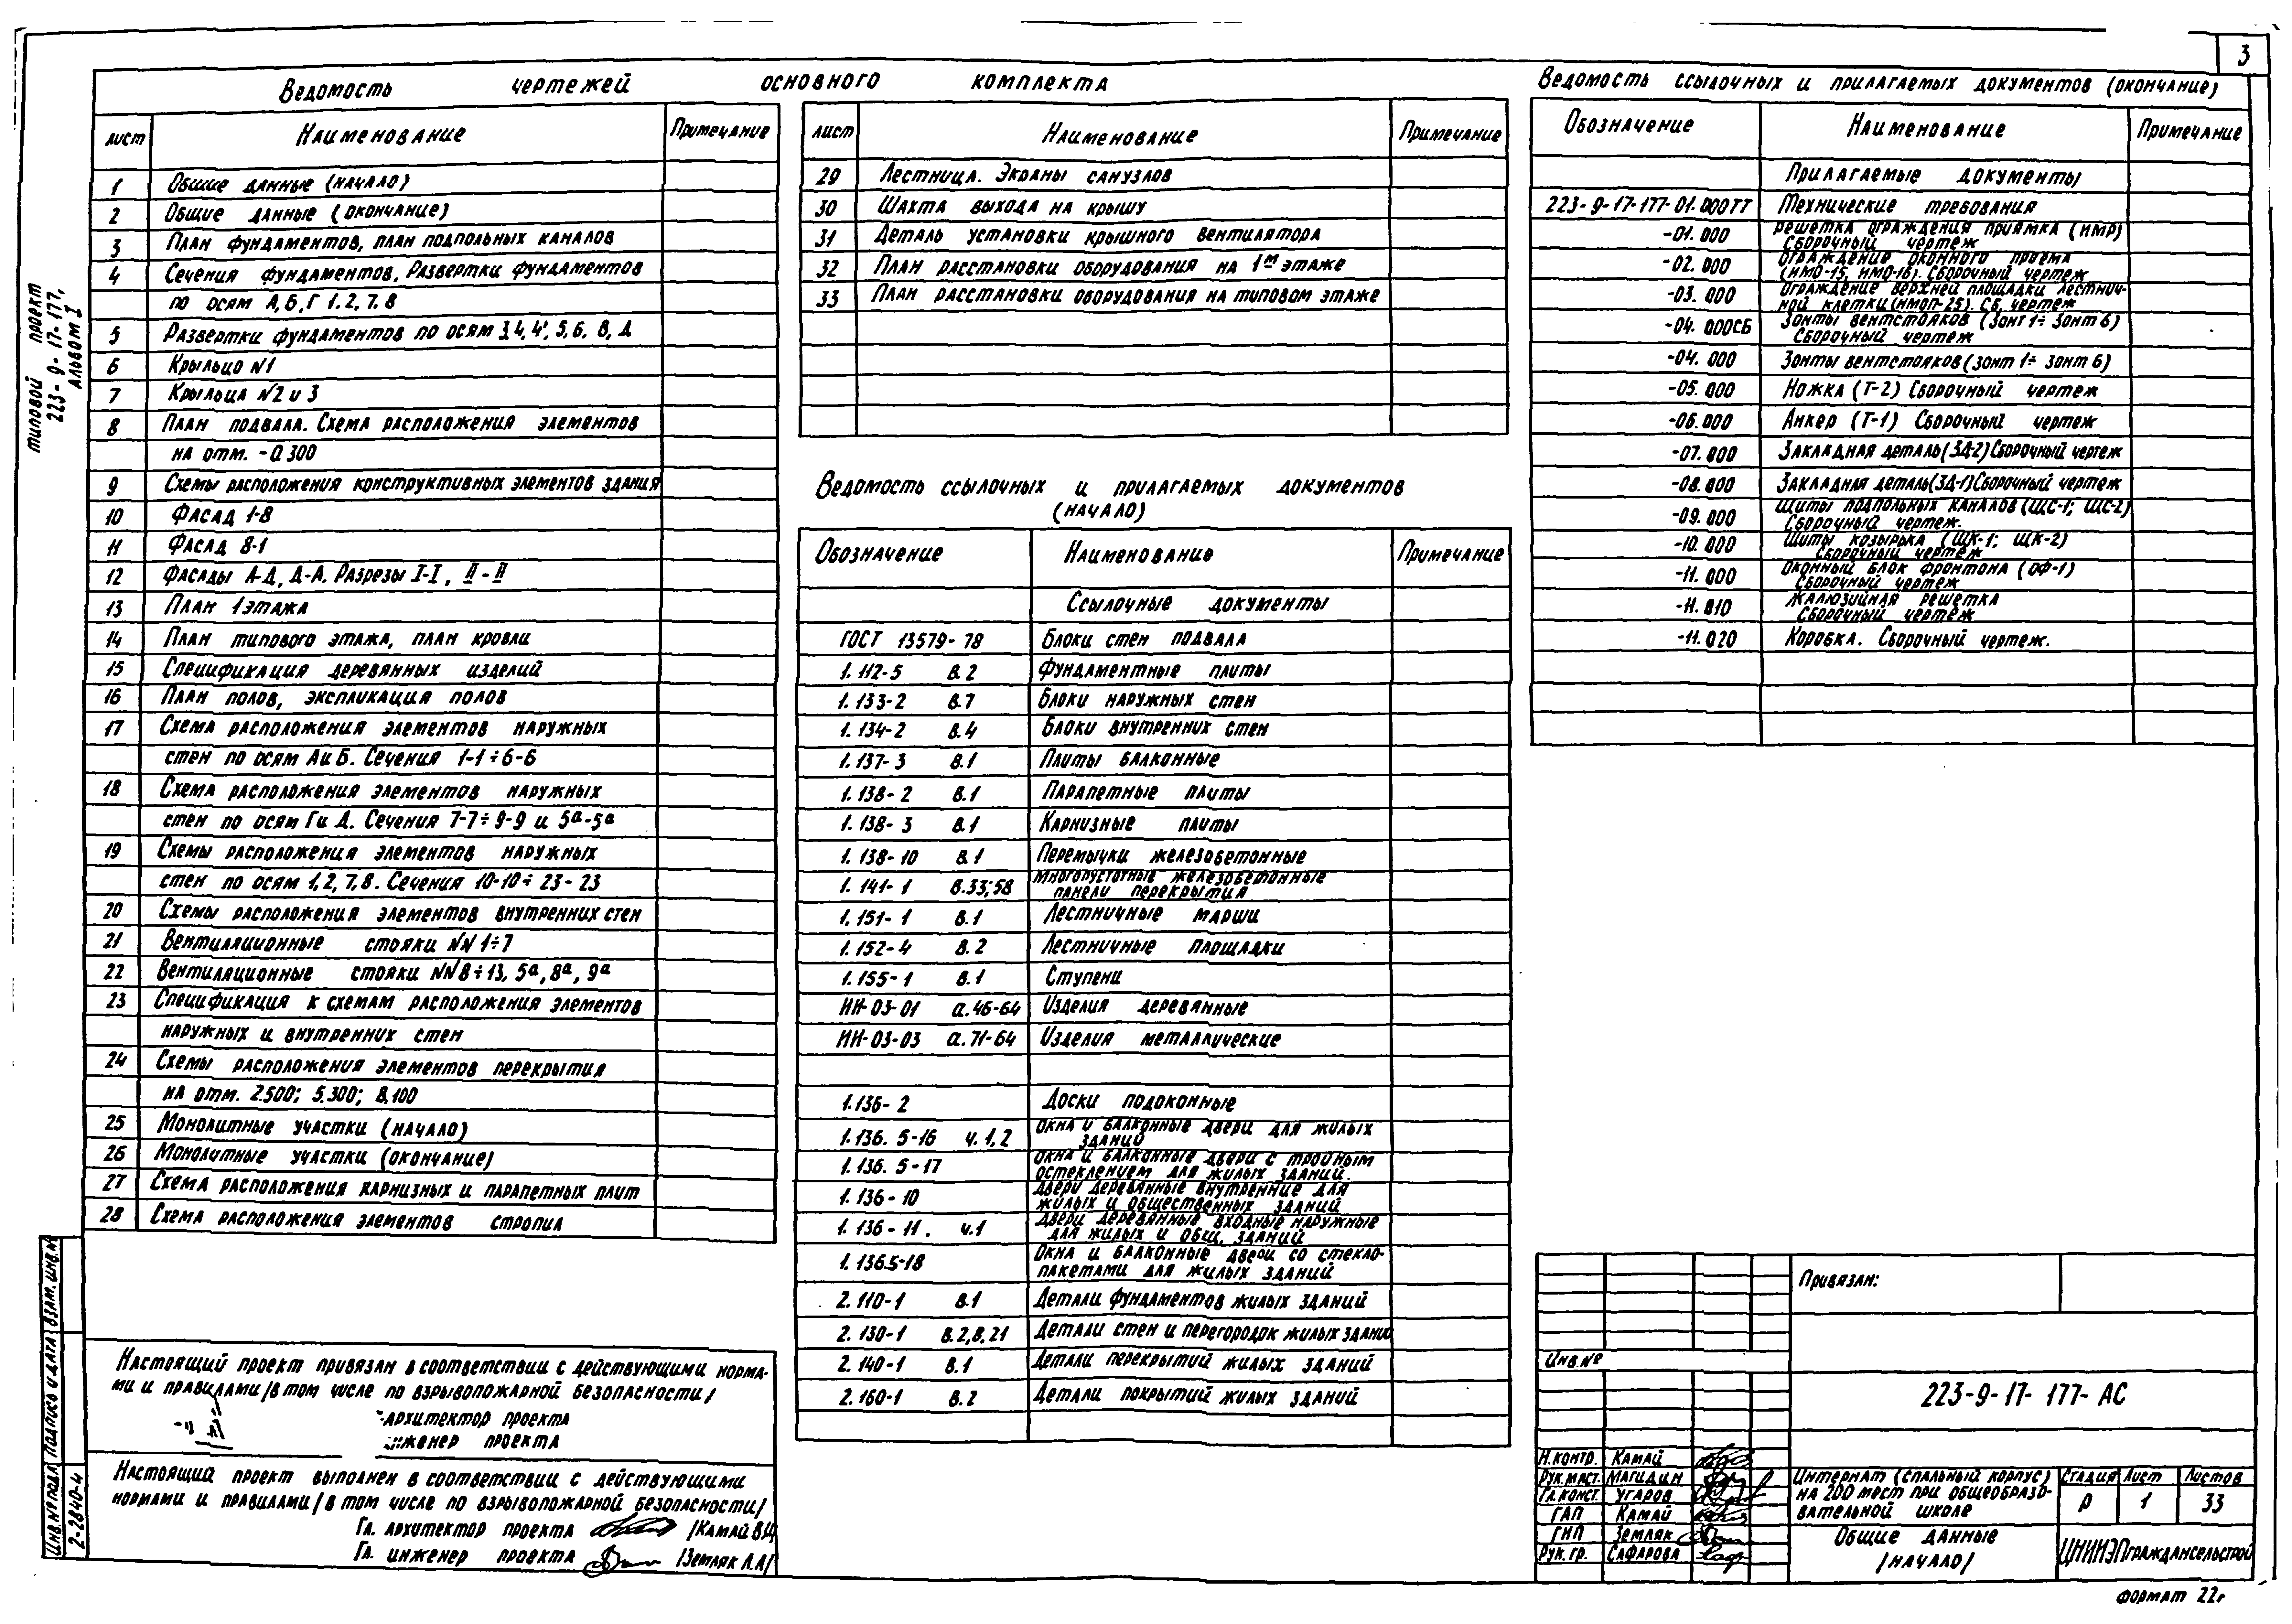 3
типовой проект
223-9-17-177,
Альбом I
Ведомость чертежей основного комплекта
лист Наименование Примечание
1 Общие данные (начало)
2 Общие данные (окончание)
3 План фундаментов, план подпольных каналов
4 Сечения фундаментов, Развертки фундаментов
по осям А, Б, Г 1, 2, 7, 8
5 Развертки фундаментов по осям 3, 4, 4', 5, 6, В, Д
6 Крыльцо №1
7 Крыльца №2 и 3
8 План подвала. Схема расположения элементов
на отм. -0.300
9 Схемы расположения конструктивных элементов здания
10 Фасад 1-8
11 Фасад 8-1
12 Фасады А-Д, Д-А. Разрезы I-I, II-II
13 План 1 этажа
14 План типового этажа, план кровли
15 Спецификация деревянных изделий
16 План полов, экспликация полов
17 Схема расположения элементов наружных
стен по осям А и Б. Сечения 1-1÷6-6
18 Схема расположения элементов наружных
стен по осям Г и Д. Сечения 7-7÷9-9 и 5а-5а
19 Схемы расположения элементов наружных
стен по осям 1, 2, 7, 8. Сечения 10-10÷23-23
20 Схемы расположения элементов внутренних стен
21 Вентиляционные стояки NN 1÷7
22 Вентиляционные стояки NN 8÷13, 5а, 8а, 9а
23 Спецификация к схемам расположения элементов
наружных и внутренних стен
24 Схемы расположения элементов перекрытия
на отм. 2.500; 5.300; 8.100
25 Монолитные участки (начало)
26 Монолитные участки (окончание)
27 Схема расположения карнизных и парапетных плит
28 Схема расположения элементов стропил
Настоящий проект привязан в соответствии с действующими норма-
ми и правилами /в том числе по взрывопожарной безопасности/
архитектор проекта
инженер проекта
Настоящий проект выполнен в соответствии с действующими
нормами и правилами /в том числе по взрывопожарной безопасности/
Гл. архитектор проекта /Камай В.И/
Гл. инженер проекта /Земляк А.А/
Инв.№ подл. Подпись и дата Взам. инв.№
2-2840-4
лист Наименование Примечание
29 Лестница. Экраны санузлов
30 Шахта выхода на крышу
31 Деталь установки крышного вентилятора
32 План расстановки оборудования на 1м этаже
33 План расстановки оборудования на типовом этаже
Ведомость ссылочных и прилагаемых документов
(начало)
Обозначение Наименование Примечание
Ссылочные документы
ГОСТ 13579-78 Блоки стен подвала
1.112-5 в.2 Фундаментные плиты
1.133-2 в.7 Блоки наружных стен
1.134-2 в.4 Блоки внутренних стен
1.137-3 в.1 Плиты балконные
1.138-2 в.1 Парапетные плиты
1.138-3 в.1 Карнизные плиты
1.138-10 в.1 Перемычки железобетонные
1.141-1 в.33; 58 Многопустотные железобетонные
панели перекрытия
1.151-1 в.1 Лестничные марши
1.152-4 в.2 Лестничные площадки
1.155-1 в.1 Ступени
ИИ-03-01 а.46-64 Изделия деревянные
ИИ-03-03 а.71-64 Изделия металлические
1.136-2 Доски подоконные
1.136.5-16 ч.1,2 Окна и балконные двери для жилых
зданий
1.136.5-17 Окна и балконные двери с тройным
остеклением для жилых зданий.
1.136-10 Двери деревянные внутренние для
жилых и общественных зданий
1.136-11. ч.1 Двери деревянные входные наружные
для жилых и общ. зданий
1.136.5-18 Окна и балконные двери со стекло-
пакетами для жилых зданий
2.110-1 в.1 Детали фундаментов жилых зданий
2.130-1 в.2, в.21 Детали стен и перегородок жилых здани
2.140-1 в.1 Детали перекрытий жилых зданий
2.160-1 в.2 Детали покрытий жилых зданий
Ведомость ссылочных и прилагаемых документов (окончание)
Обозначение Наименование Примечание
Прилагаемые документы
223-9-17-177-01.000ТТ Технические требования
-01.000 Решетка ограждения приямка (НМР)
Сборочный чертеж
-02.000 Ограждение оконного проема
(НМО-15, НМО-16). Сборочный чертеж
-03.000 Ограждение верхней площадки лестнич-
ной клетки (НМОП-25). Сб. чертеж
-04.000СБ Зонты вентстояков (Зонт 1÷Зонт 6)
Сборочный чертеж
-04.000 Зонты вентстояков (зонт 1÷зонт 6)
-05.000 Ножка (Т-2) Сборочный чертеж
-06.000 Анкер (Т-1) Сборочный чертеж
-07.000 Закладная деталь (ЗД-2) Сборочный чертеж
-08.000 Закладная деталь (ЗД-1) Сборочный чертеж
-09.000 Щиты подпольных каналов (ЩС-1; ЩС-2)
Сборочный чертеж.
-10.000 Щиты козырька (ЩК-1; ЩК-2)
Сборочный чертеж
-11.000 Оконный блок фронтона (ОФ-1)
Сборочный чертеж
-11.010 Жалюзийная решетка
Сборочный чертеж
-11.020 Коробка. Сборочный чертеж.
Привязан:
Инв.№
223-9-17-177-АС
Н.контр. Камай
Рук.маст. Магидин
Гл.конст. Угаров
ГАП Камай
ГИП Земляк
Рук.гр. Сафарова
Интернат (спальный корпус)
на 200 мест при общеобразо-
вательной школе
Стадия Лист Листов
Р 1 33
Общие данные
/начало/
ЦНИИЭПграждансельстрой
Формат 22г